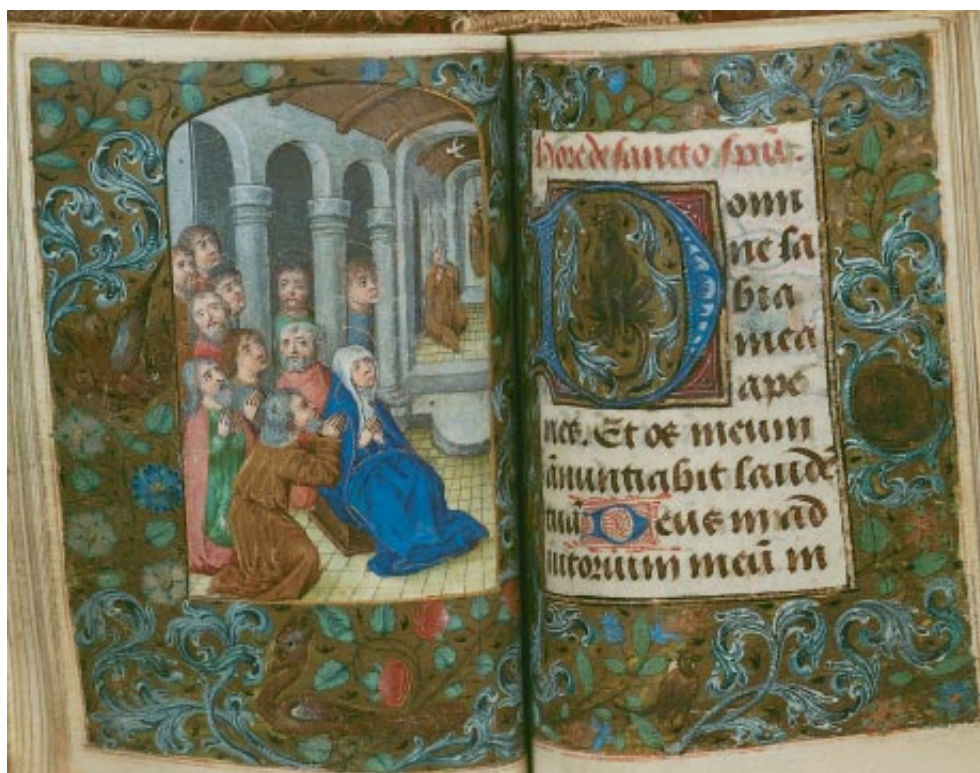 Hore de sancto spũ.
Domi
ne la
bia
mea
ape
ries. Et os meum
ãnuntiabit laudẽ
tuã Deus in ad
iutorium meũ in